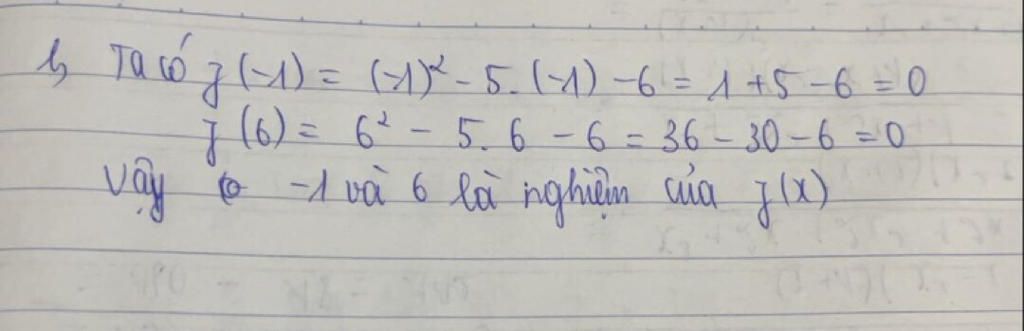 b, Ta có f(-1) = (-1)² - 5.(-1) - 6 = 1 + 5 - 6 = 0
f(6) = 6² - 5.6 - 6 = 36 - 30 - 6 = 0
Vậy -1 và 6 là nghiệm của f(x)